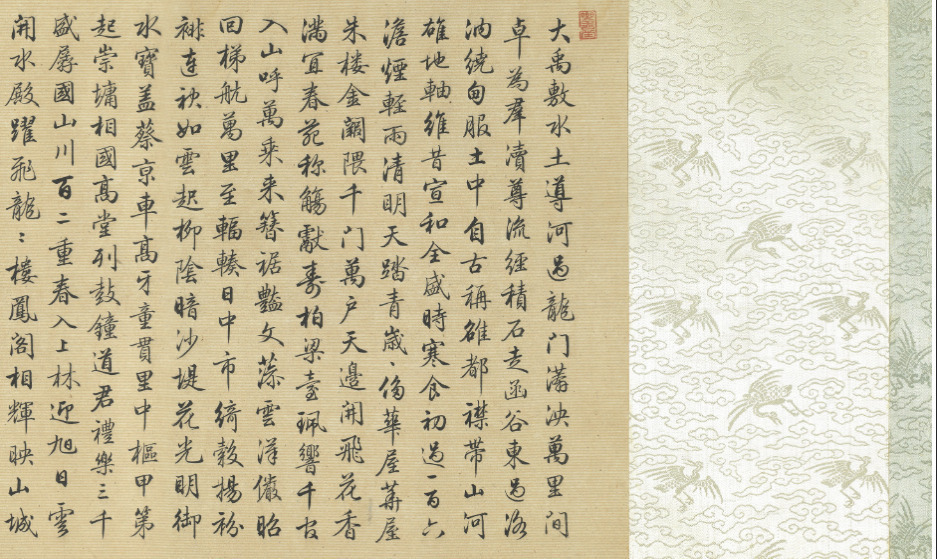 大禹敷水土導河過龍门瀟泱萬里间
卓為羣瀆尊流經積石走函谷東過洛
汭繞甸服土中自古稱雒都襟带山河
雄地軸維昔宣和全盛時寒食初過一百六
澹煙輕雨清明天踏青歲〻侈華屋華屋
朱楼金闕隈千门萬户天邊開飛花香
滿宜春苑称觴獻壽柏梁臺珮響千官
入山呼萬乘来簪裾豔文藻雲漢儼昭
回梯航萬里至輻輳日中市綺縠揚紛
裶連袂如雲起柳陰暗沙堤花光明御
水寶盖蔡京車髙牙童貫里中樞甲第
起崇墉相國髙堂列鼓鐘道君禮樂三千
盛孱國山川百二重春入上林迎旭日雲
開水殿躍飛龍〻樓鳳阁相輝映山城